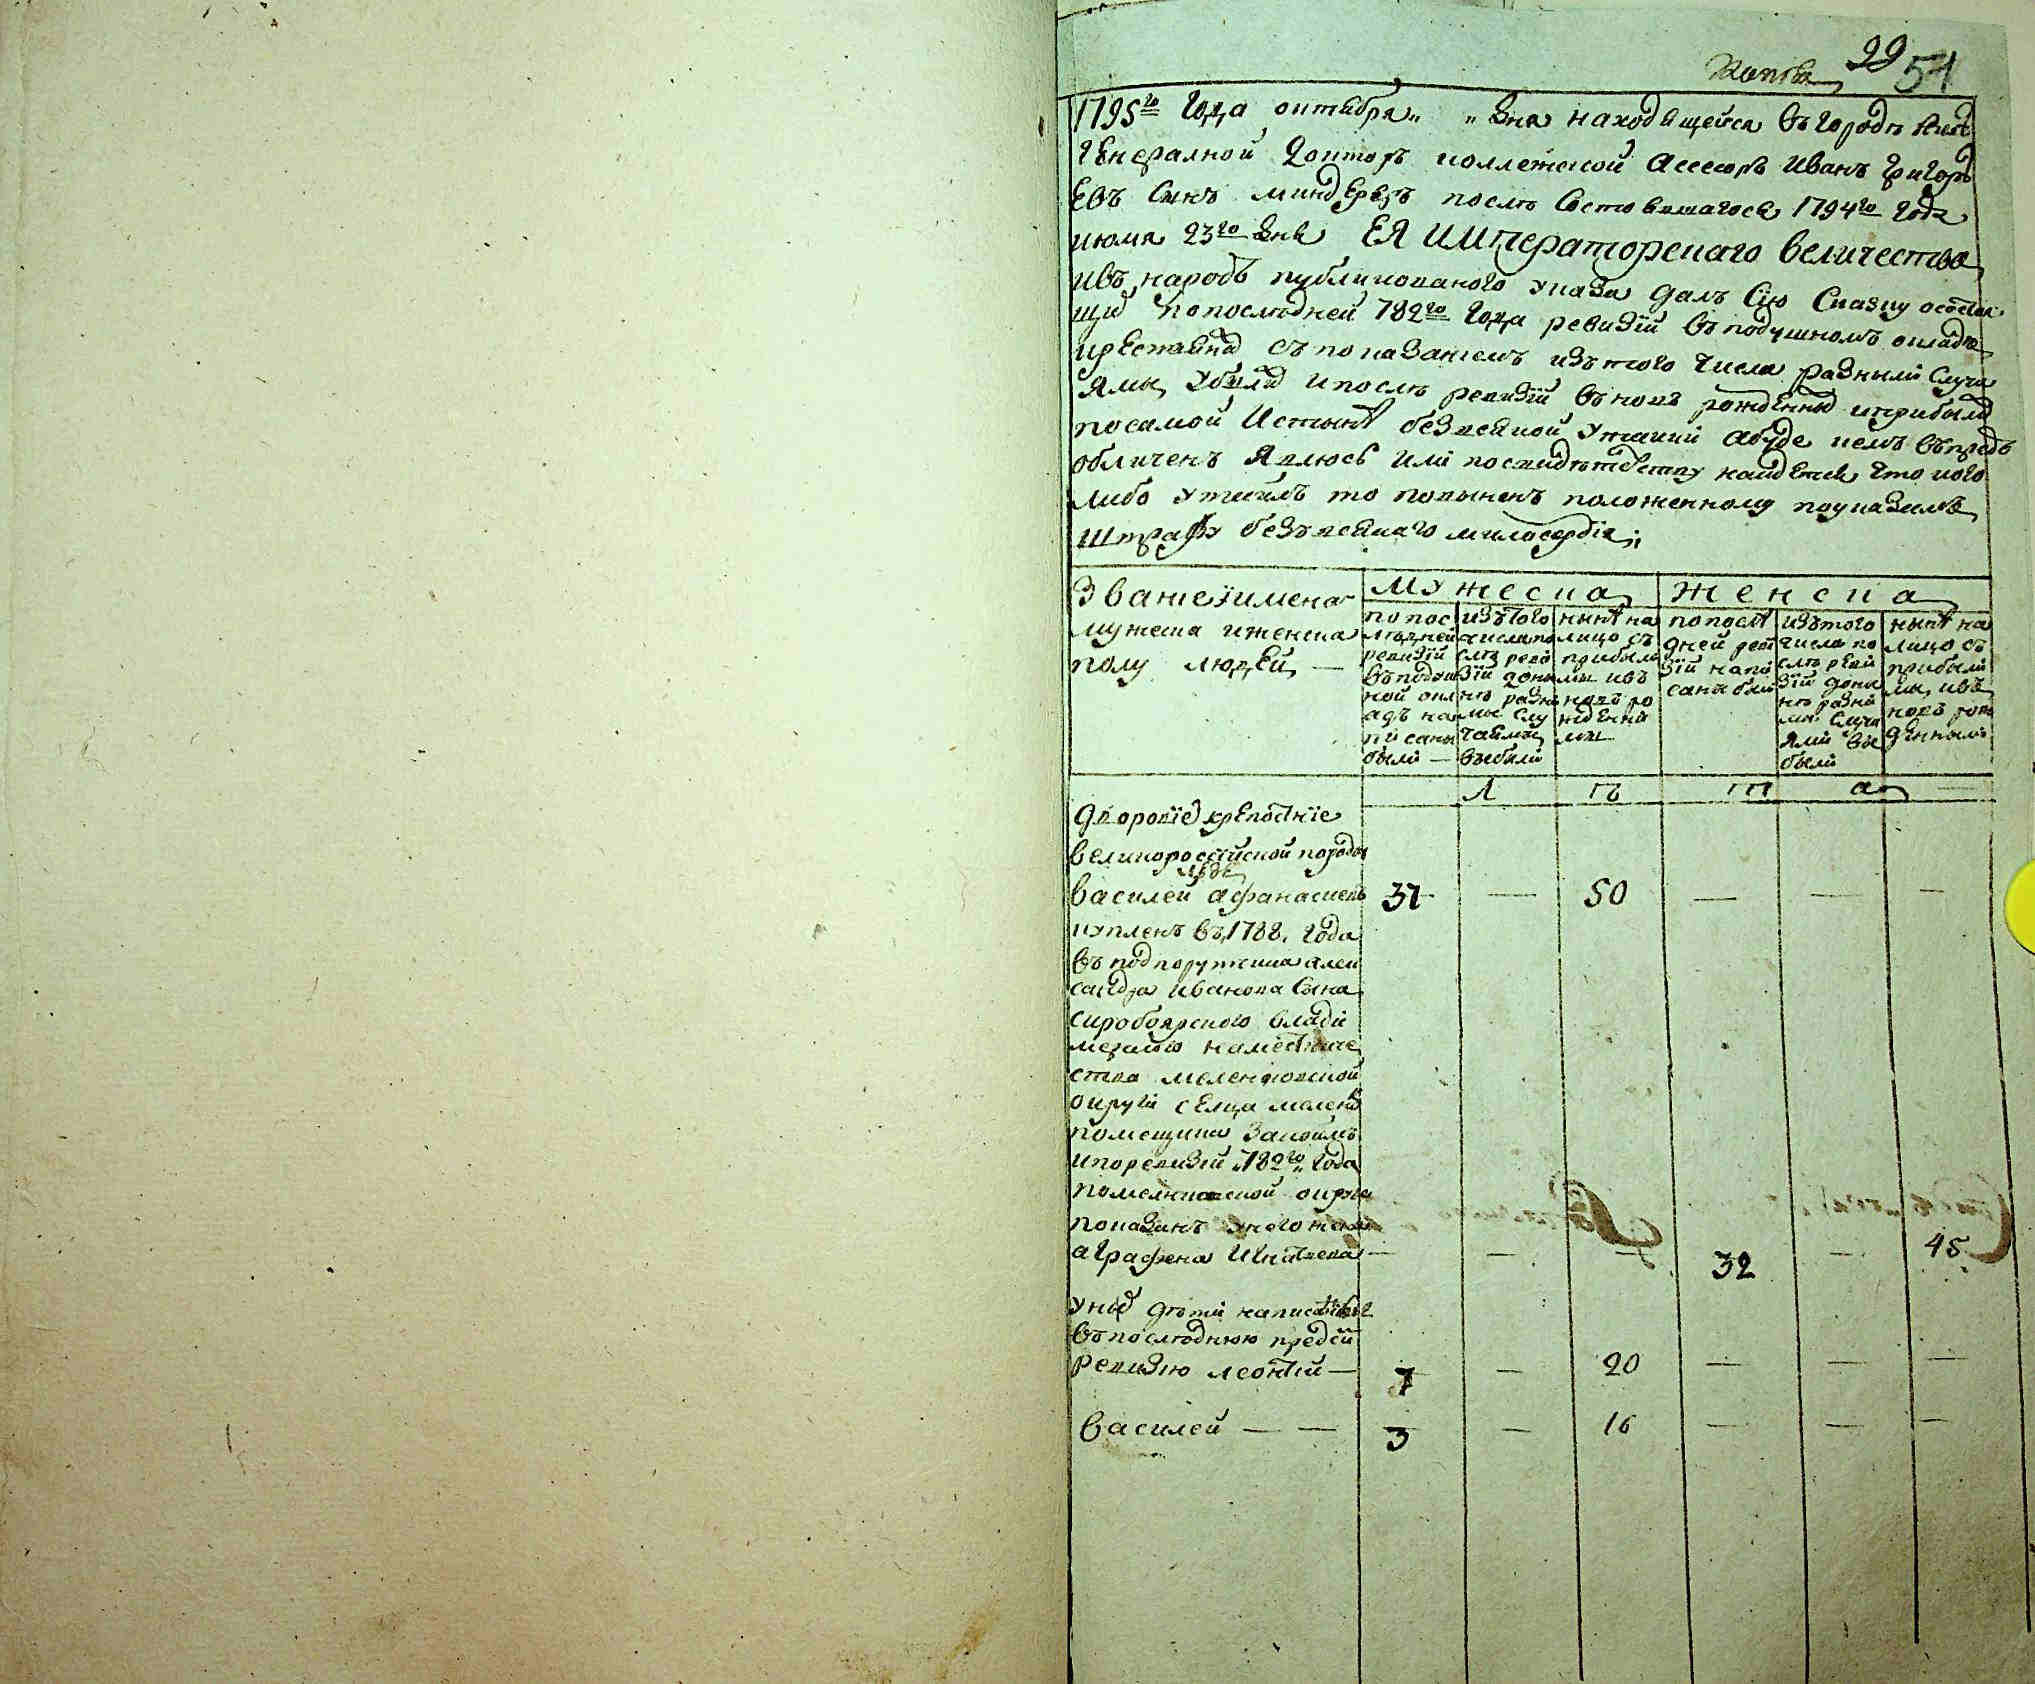 Копия 29 51
1795го года октября „ „ дня находящейся въ городѣ
генералной докторъ коллежской асессоръ Иванъ Григорь
евъ сынъ Миндереръ послѣ состоявшагося 1794го года
июня 23го дня ЕЯ ИМператорскаго величества
ивъ народъ публикованого указа далъ сию сказку о состоя
щих по последней 782го года ревизіи въ подушномъ окладѣ
крестьянах съ показаниемъ изъ того числа разными случа
ями убылих и послѣ ревизіи вновъ рожденных и прибылих
по самой истиннѣ безъ всякой утайки а буде кемъ въпредь
обличенъ явлюсь или по свидѣтельству найдется что кого
либо утаилъ то повыненъ положенному по указамъ
штрафу безъ всякаго милосердія
Званіе и имена
мужеска и женска
полу людей —
мужеска
женска
по пос
лѣдней
ревизіи
въ подуш
ной окл
адъ на
писаны
были —
изъ того
числа по
слѣ реви
зіи доны
нѣ разны
мы слу
чаями
выбыли
нынѣ на
лицо съ
прибылы
мы и въ
новъ ро
жденны
мы
по послѣ
дней реви
зіи напи
саны были
изъ того
числа по
слѣ реви
зіи доны
нѣ разны
ми случа
ями вы
были
нынѣ на
лицо съ
прибыли
мы, и въ
новъ рож
денными
л ѣ т а
дворовіе крепостніе
великоросійской породы
люде
василей афанасиевъ 37 — 50 — — —
купленъ въ 1788. года
въ подпоружика алек
сандра иванова сына
скробоярского влади
мерского намѣстниче
ства меленковской
округи селца
помещика
и по ревизіи 782го года
по меленковской округи
показанъ у него жена
аграфена игнатиева — — — 32 — 45
у них дѣти написанніе
въ последнюю пред сей
ревизию леонтій — 7 — 20 — — —
василей — — 3 — 16 — — —